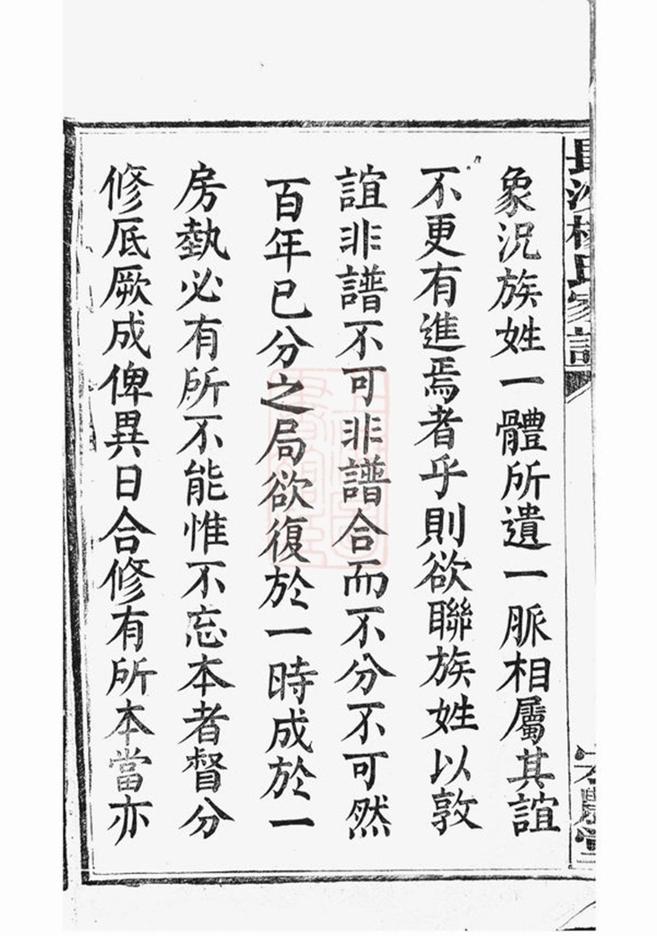 長沙楊氏家譜
象況族姓一體所遺一脈相屬其誼
不更有進焉者乎則欲聯族姓以敦
誼非譜不可非譜合而不分不可然
百年已分之局欲復於一時成於一
房埶必有所不能惟不忘本者督分
修底厥成俾異日合修有所本當亦